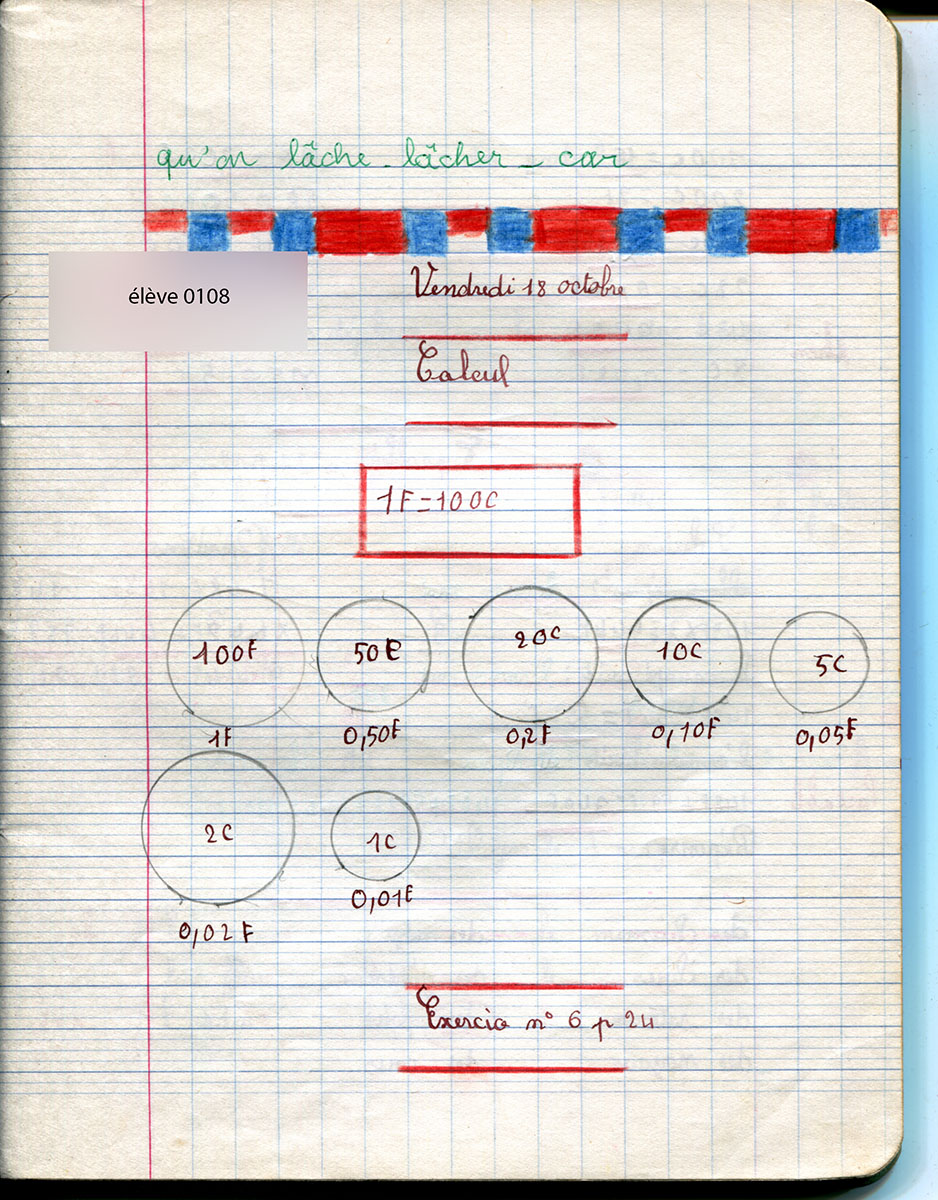 qu'on lâche - lâcher - car
élève 0108
Vendredi 18 octobre
Calcul
1F=100C
100F 50C 20C 10C 5C
1F 0,50F 0,2F 0,10F 0,05F
2C 1C
0,02F 0,01F
Exercice n° 6 p 24